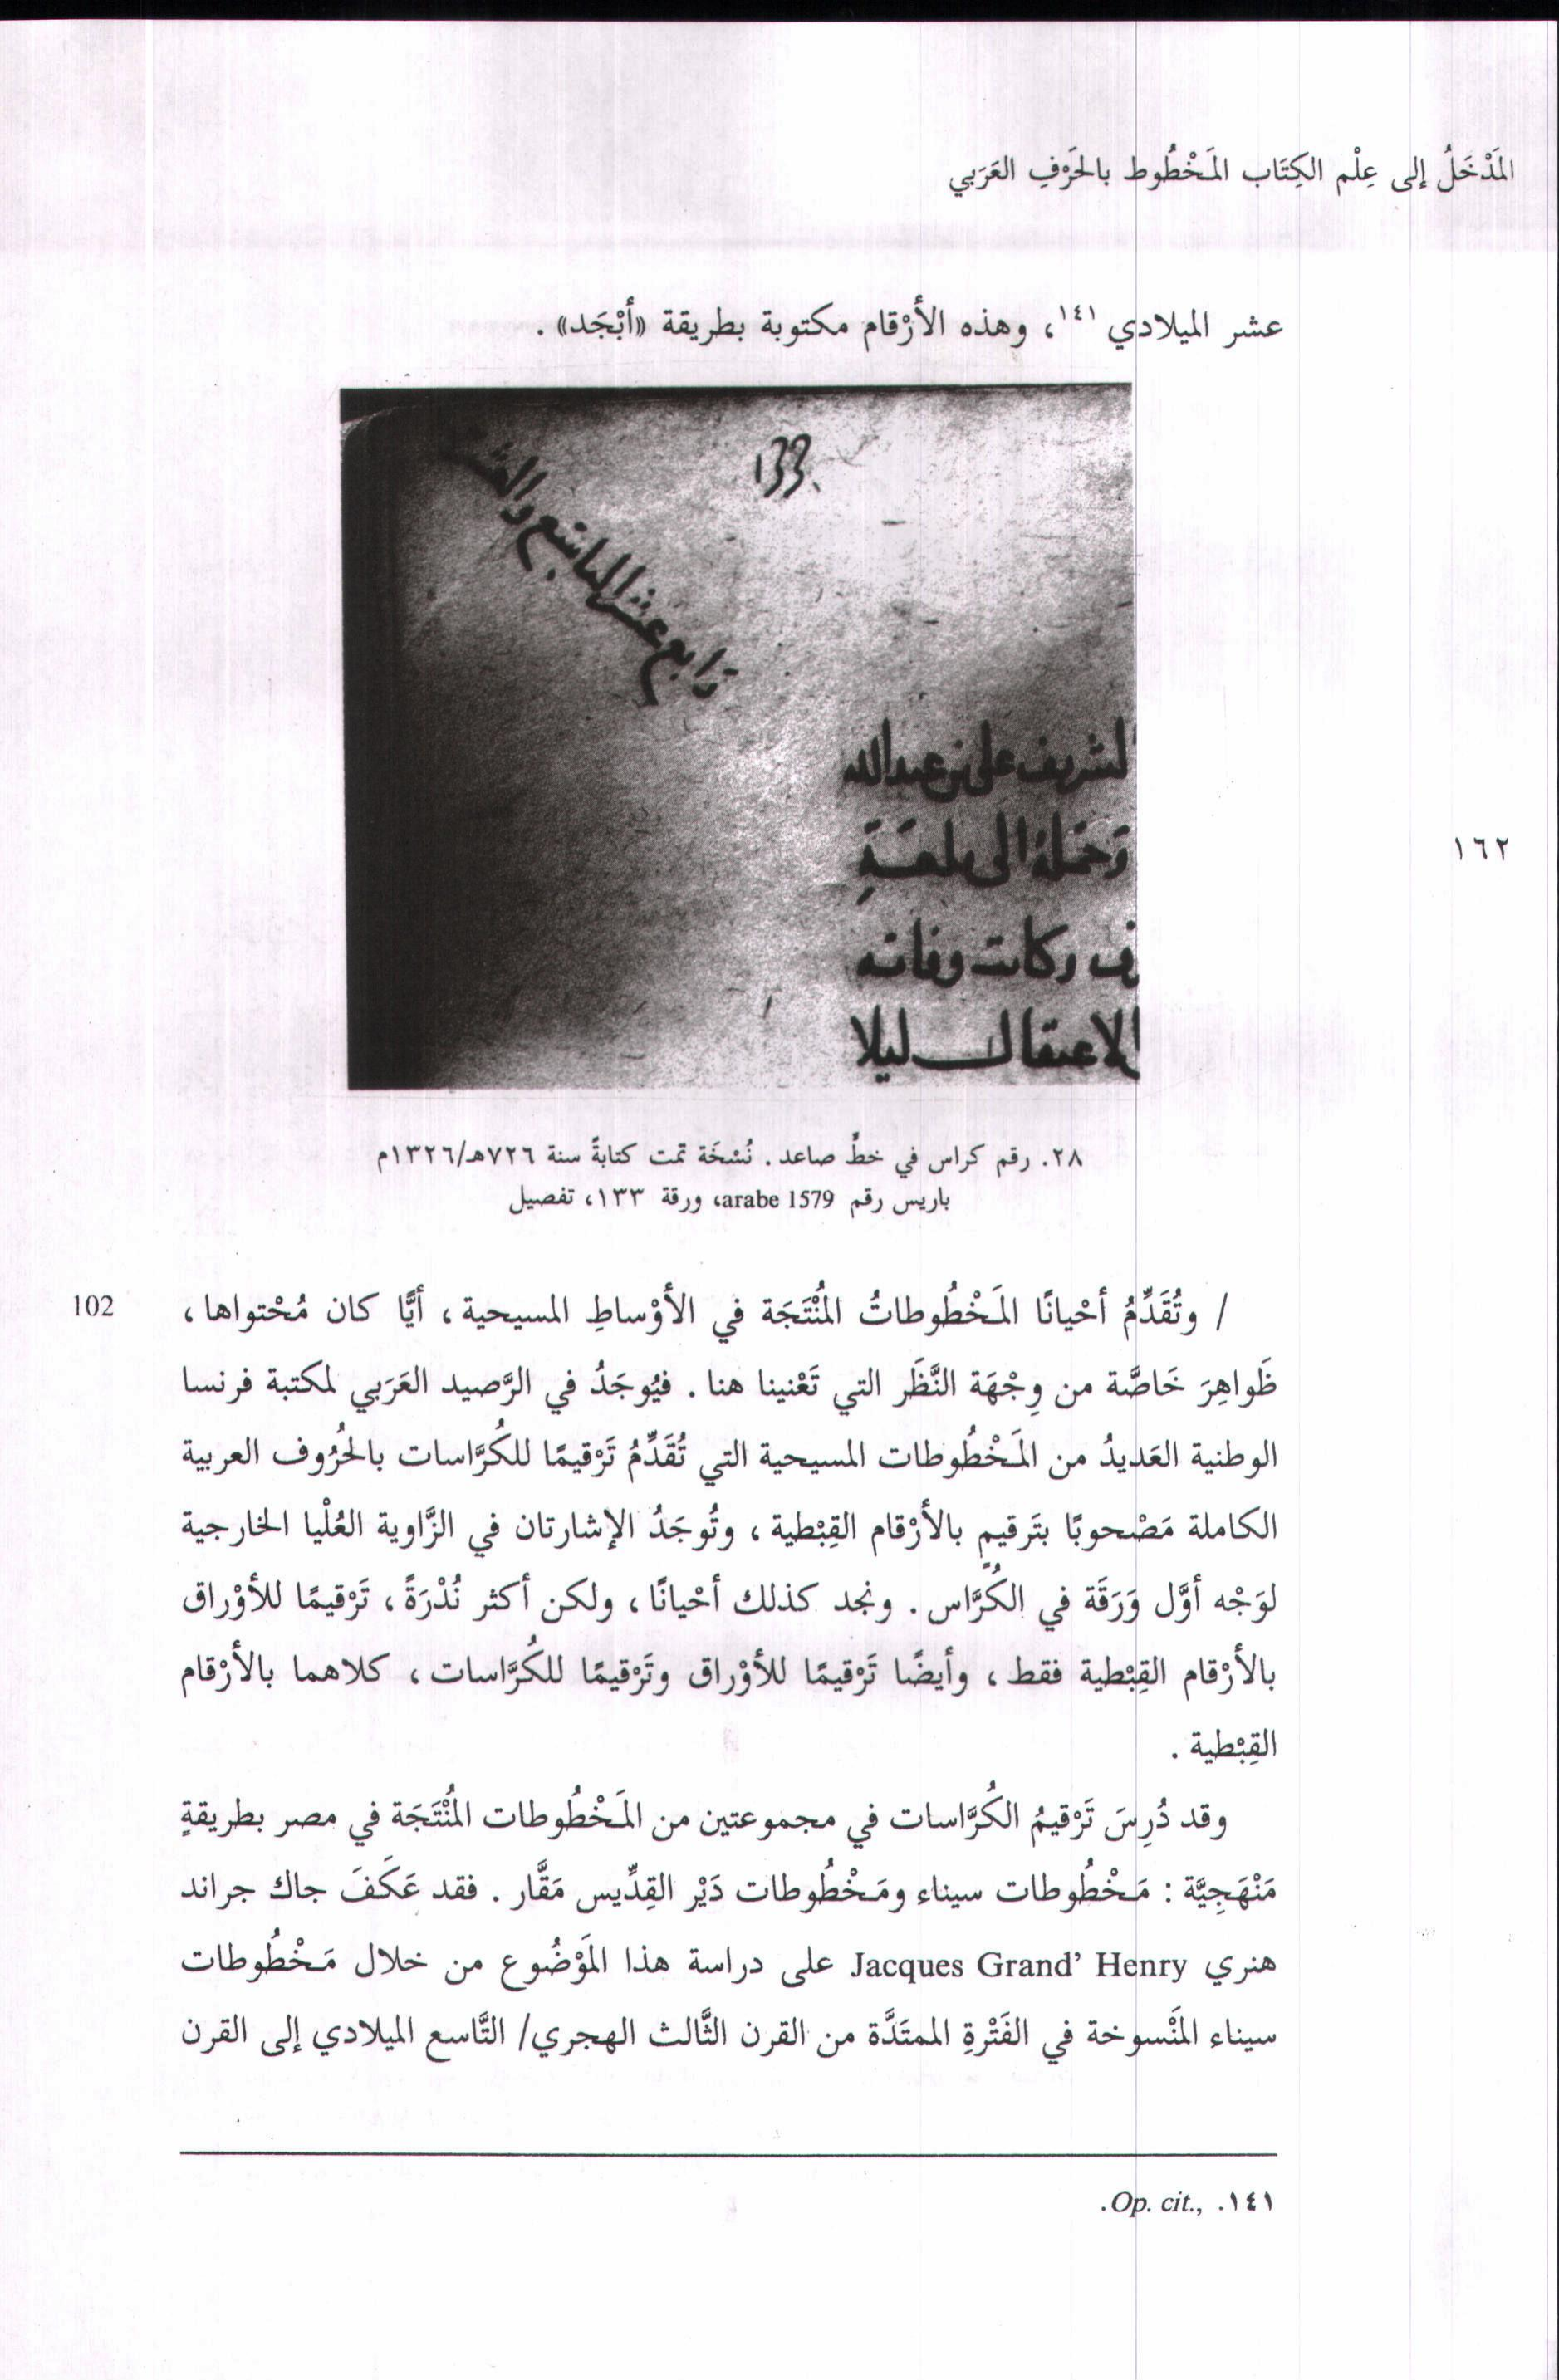 المَدْخَلُ إلى عِلْم الكِتَاب المَخْطُوط بالحَرْفِ العَرَبي
عشر الميلادي ١٤١، وهذه الأرْقام مكتوبة بطريقة «أبْجَد» .
133.
رابع عشر السابع والعشر
لشريف على بن عبد الله
وَحَمَلهُ الى
وكانت وفاته
الاعتقال ليلا
١٦٢
٢٨. رقم كراس في خطٍّ صاعد. نُسْخَة تمت كتابةً سنة ٧٢٦هـ/١٣٢٦م
باريس رقم arabe 1579، ورقة ١٣٣، تفصيل
102
/ وتُقَدِّمُ أحْيانًا المَخْطُوطاتُ المُنْتَجَة في الأوْساطِ المسيحية، أيًّا كان مُحْتواها،
ظَواهِرَ خَاصَّة من وِجْهَة النَّظَر التي تَعْنينا هنا. فيُوجَدُ في الرَّصيد العَرَبي لمكتبة فرنسا
الوطنية العَديدُ من المَخْطُوطات المسيحية التي تُقَدِّمُ تَرْقيمًا للكُرَّاسات بالحُرُوف العربية
الكاملة مَصْحوبًا بتَرقيمٍ بالأرْقام القِبْطية، وتُوجَدُ الإشارتان في الزَّاوية العُلْيا الخارجية
لوَجْه أوَّل وَرَقَة في الكُرَّاس. ونجد كذلك أحْيانًا، ولكن أكثر نُدْرَةً، تَرْقيمًا للأوْراق
بالأرْقام القِبْطية فقط، وأيضًا تَرْقيمًا للأوْراق وتَرْقيمًا للكُرَّاسات، كلاهما بالأرْقام
القِبْطية .
وقد دُرِسَ تَرْقيمُ الكُرَّاسات في مجموعتين من المَخْطُوطات المُنْتَجَة في مصر بطريقةٍ
مَنْهَجِيَّة : مَخْطُوطات سيناء ومَخْطُوطات دَيْر القِدِّيس مَقَّار . فقد عَكَفَ جاك جراند
هنري Jacques Grand' Henry على دراسة هذا المَوْضُوع من خلال مَخْطُوطات
سيناء المَنْسوخة في الفَتْرةِ الممتَدَّة من القرن الثَّالث الهجري/ التَّاسع الميلادي إلى القرن
١٤١. Op. cit.,.